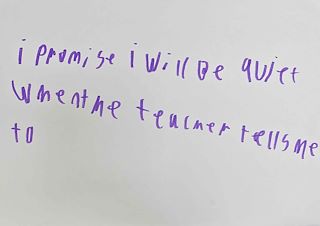 i promise i will be quiet
when the teacher tells me
to